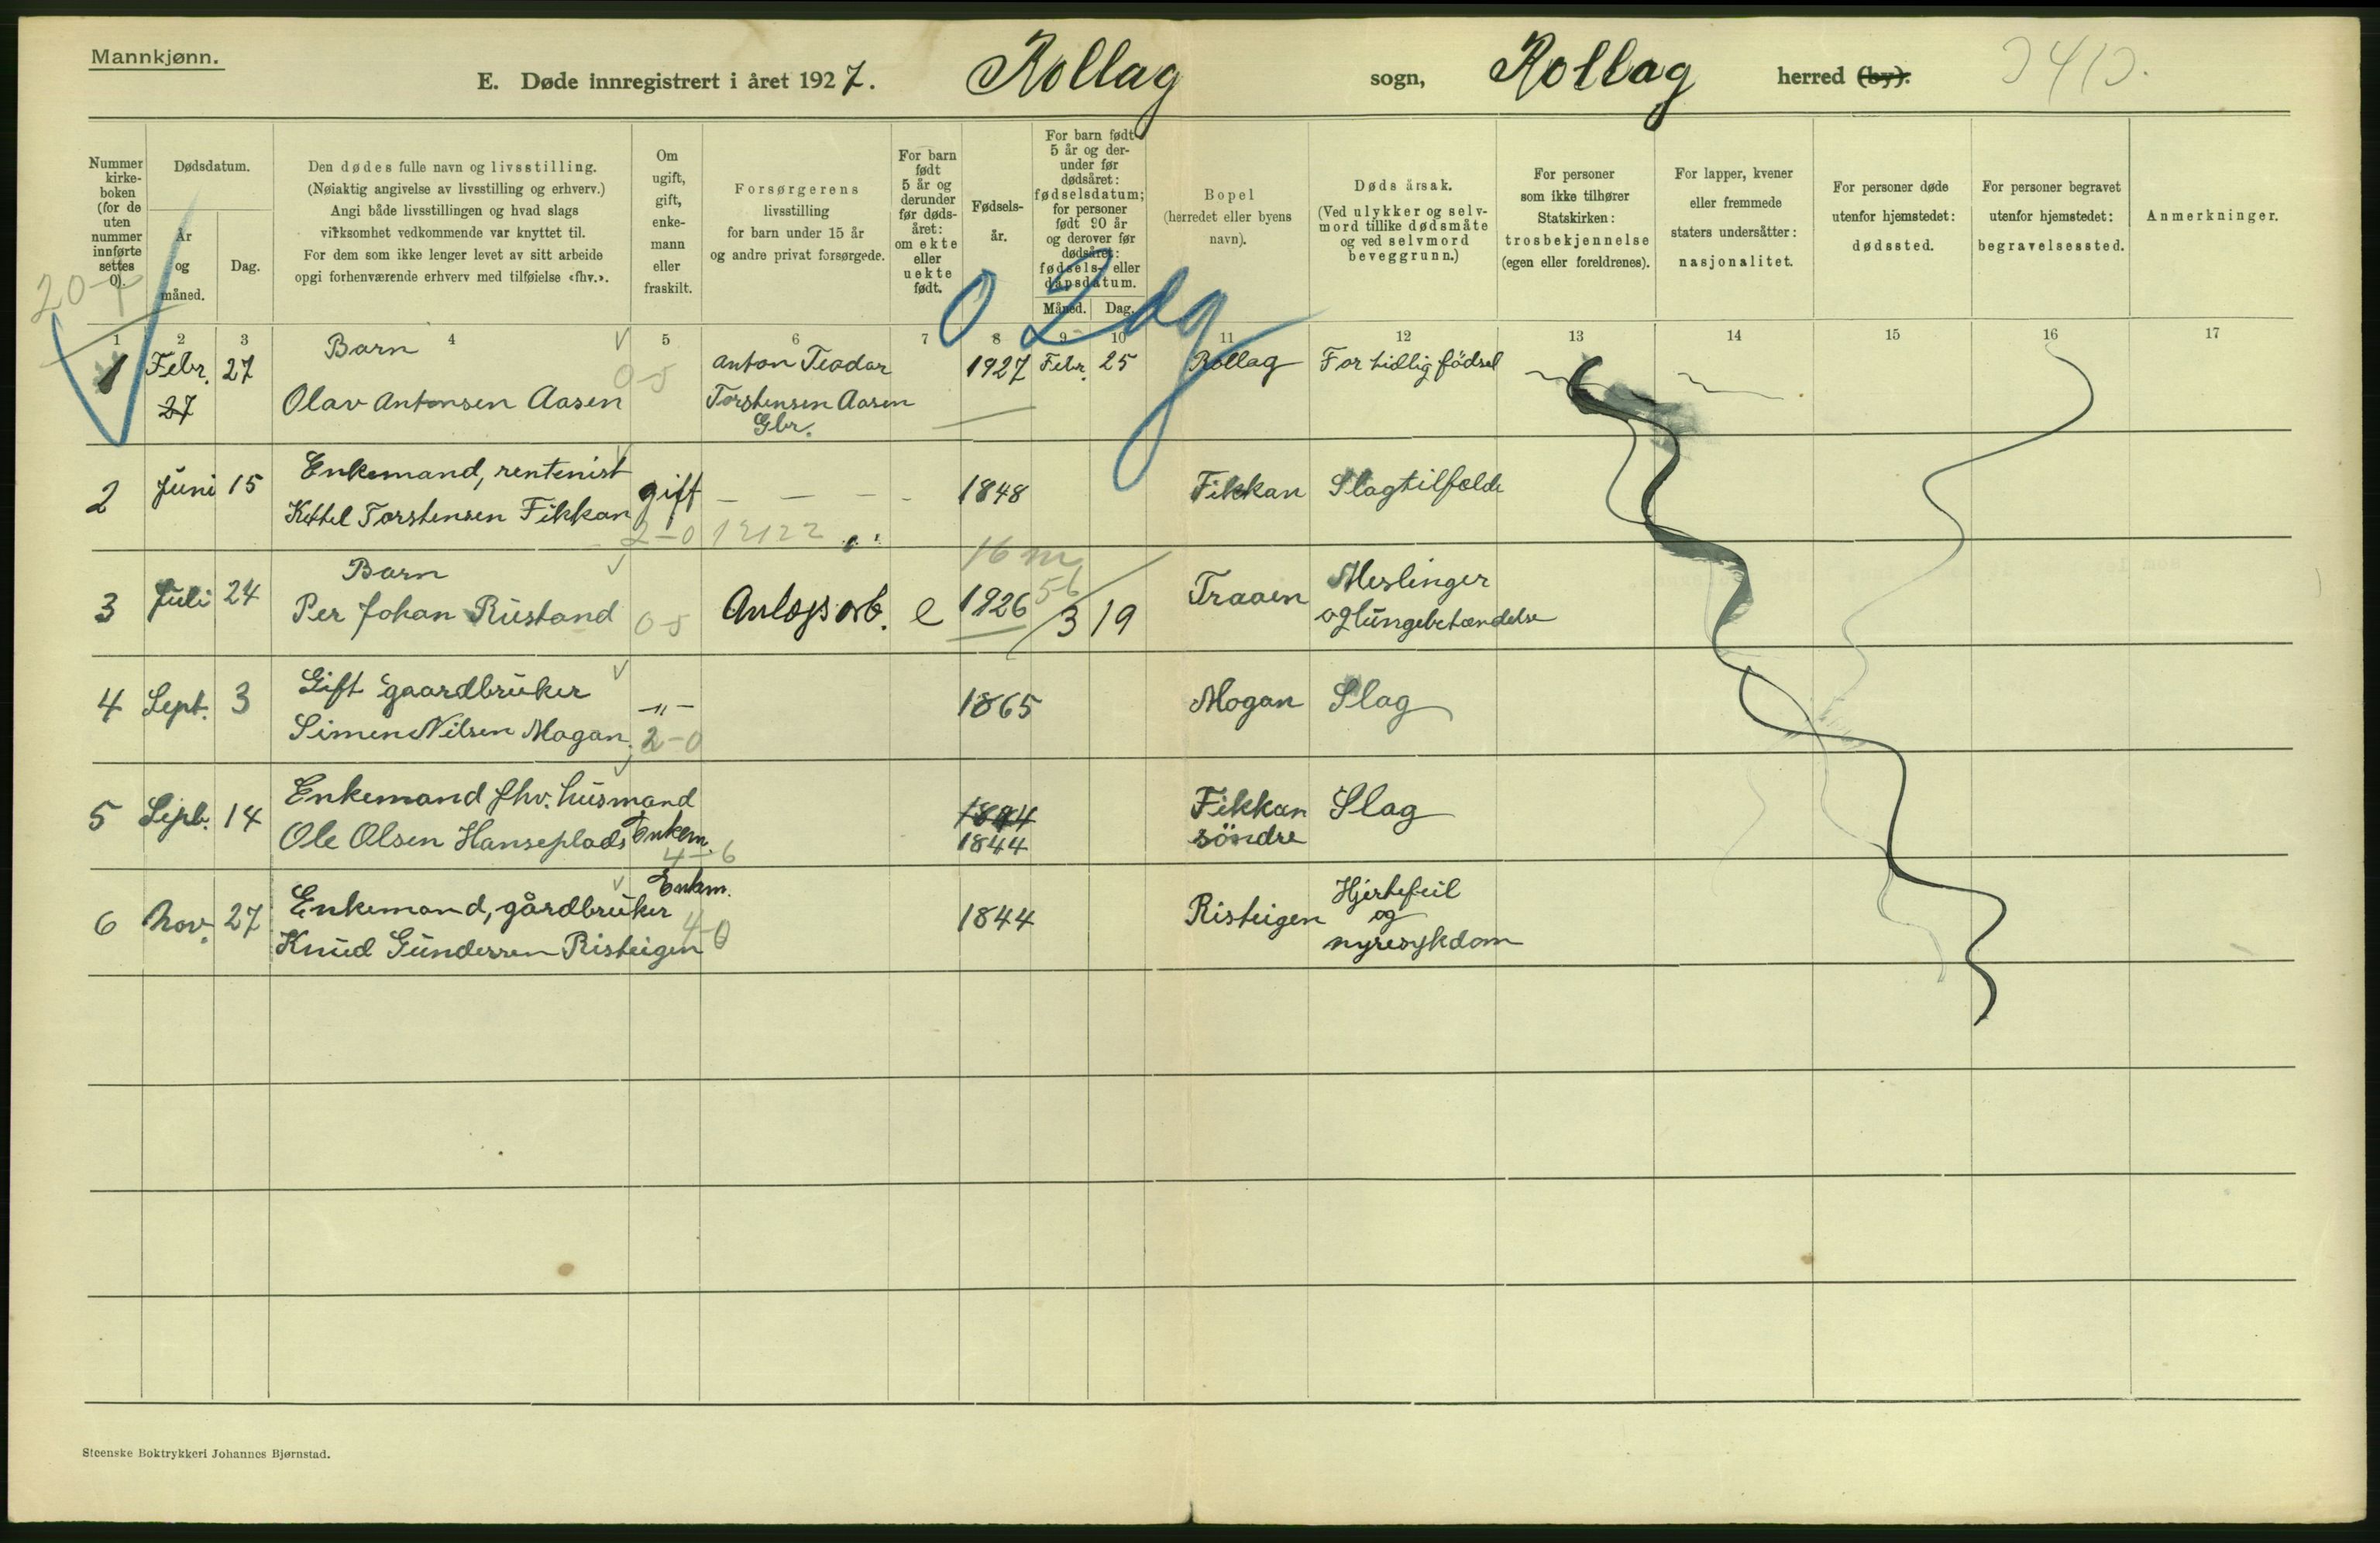 Mannkjønn.
E. Døde innregistrert i året 1927. Rollag sogn, Rollag herred (by).
Nummer kirke- boken (for de uten nummer innførte settes 0).
Dødsdatum.
År og måned.
Dag.
Den dødes fulle navn og livsstilling.
(Nøiaktig angivelse av livsstilling og erhverv.)
Angi både livsstillingen og hvad slags
virksomhet vedkommende var knyttet til.
For dem som ikke lenger levet av sitt arbeide
opgi forhenværende erhverv med tilføielse «fhv.».
Om ugift, gift, enke- mann eller fraskilt.
Forsørgerens
livsstilling
for barn under 15 år
og andre privat forsørgede.
For barn født 5 år og derunder før døds- året: om ekte eller uekte født.
Fødsels- år.
For barn født 5 år og der- under før dødsåret: fødselsdatum; for personer født 90 år og derover før dødsåret: fødsels- eller dåpsdatum.
Måned. Dag.
Bopel
(herredet eller byens
navn).
Dødsårsak.
(Ved ulykker og selv-
mord tillike dødsmåte
og ved selvmord
beveggrunn.)
For personer
som ikke tilhører
Statskirken:
trosbekjennelse
(egen eller foreldrenes).
For lapper, kvener
eller fremmede
staters undersåtter:
nasjonalitet.
For personer døde
utenfor hjemstedet:
dødssted.
For personer begravet
utenfor hjemstedet:
begravelsessted.
Anmerkninger.
1 2 3 4 5 6 7 8 9 10 11 12 13 14 15 16 17
0 2 dg
1 Febr. 27 Barn Anton Teodor 1927 Febr. 25 Rollag For tidlig födsel
27 Olav Antonsen Aasen 0-5 Torstensen Aasen
Gbr.
2 Juni 15 Enkemand, rentenist gift — — — - 1848 Fikkan Slagtilfelde
Kittel Torstensen Fikkan 2-0 12122
16 m
3 Juli 24 Barn Anlegsarb. e 1926 3 19 Traaen Meslinger
Per Johan Rustand 0-5 56 og lungebetændelse
4 Sept. 3 Gift gaardbruker -"- 1865 Mogan Slag
Simen Nilsen Mogan. 2-0
5 Sept. 14 Enkemand fhv. husmand 1894 Fikkan Slag
Ole Olsen Hanseplads Enkem. 1844 söndre
4-6
6 Nov. 27 Enkemand, gårdbruker Enkm. 1844 Risteigen Hjertefeil
og
Knud Gundersen Risteigen 4-0 nyresykdom
Steenske Boktrykkeri Johannes Bjørnstad.